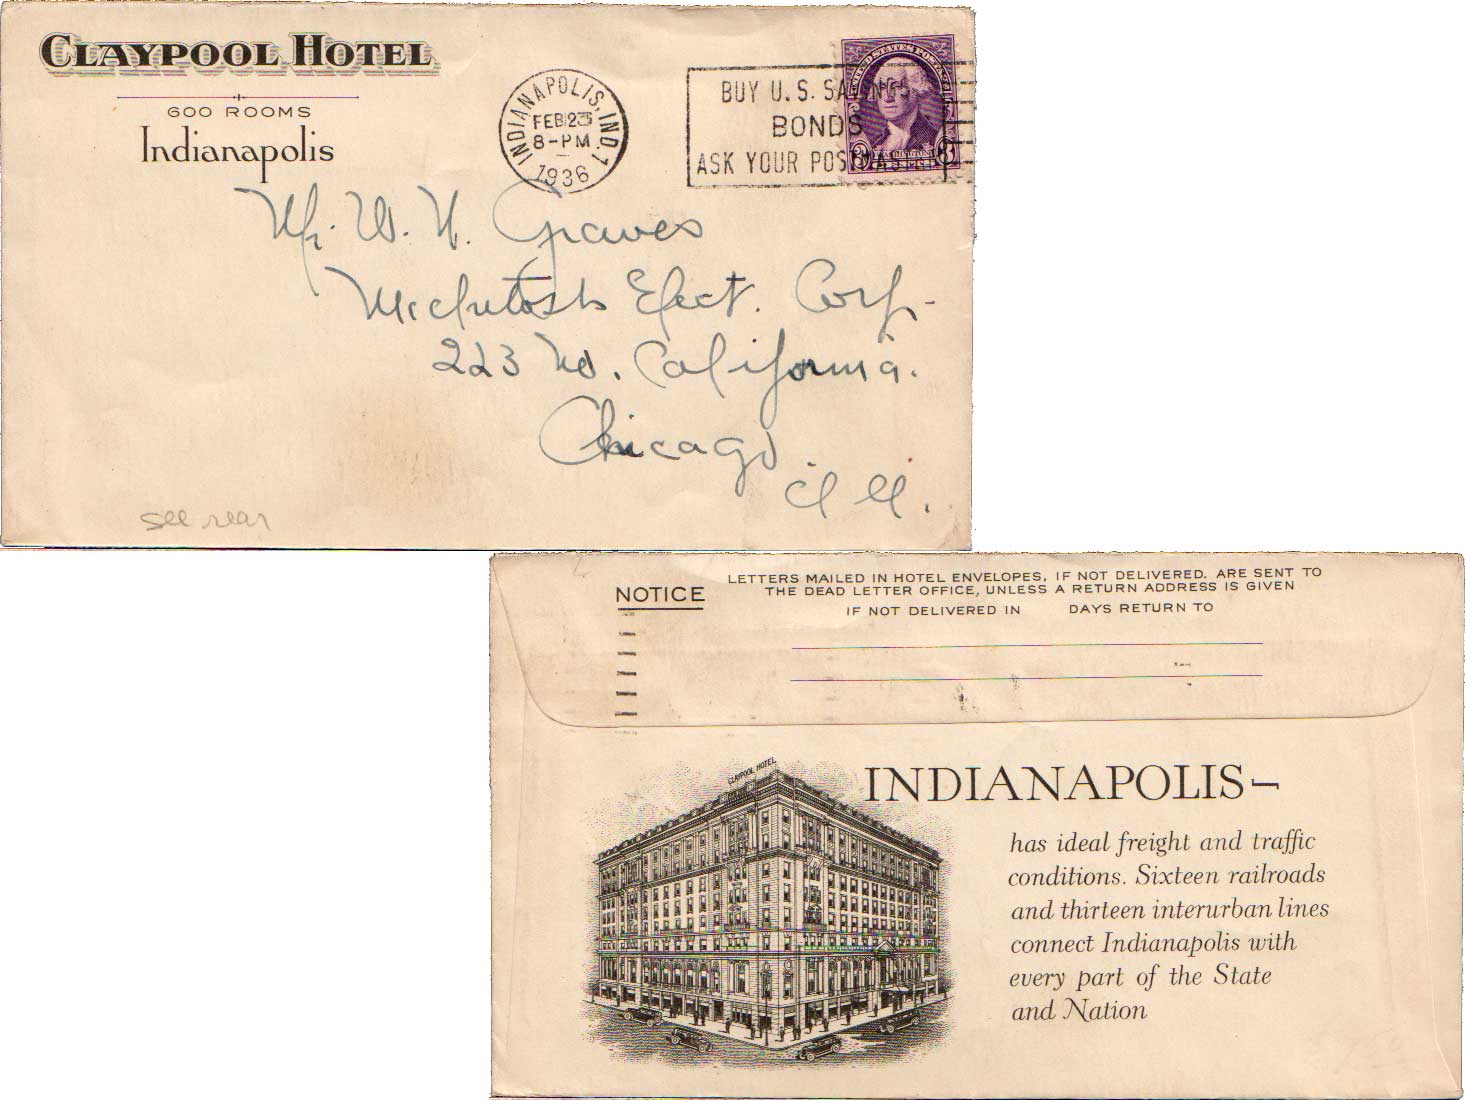 CLAYPOOL HOTEL
600 ROOMS
Indianapolis
INDIANAPOLIS, IND. 1
FEB 23
8-PM
1936
BUY U. S. SAVINGS
BONDS
ASK YOUR POSTMASTER
UNITED STATES POSTAGE
WASHINGTON
3 3
Mr. W. H. Graves
McIntosh Elect. Corp.
223 No. California.
Chicago
Ill.
see rear
NOTICE
LETTERS MAILED IN HOTEL ENVELOPES, IF NOT DELIVERED, ARE SENT TO
THE DEAD LETTER OFFICE, UNLESS A RETURN ADDRESS IS GIVEN
IF NOT DELIVERED IN DAYS RETURN TO
CLAYPOOL HOTEL
INDIANAPOLIS—
has ideal freight and traffic
conditions. Sixteen railroads
and thirteen interurban lines
connect Indianapolis with
every part of the State
and Nation